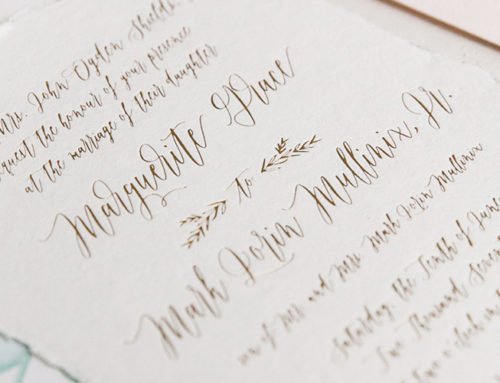 Mrs. John Ogden Shields,
request the honour of your presence
at the marriage of their daughter
Marguerite Grace
to
Mark Lorin Mullinix, Jr.
son of Mr. and Mrs. Mark Lorin Mullinix
Saturday, the Tenth of June
Two Thousand Seven
o'clock in